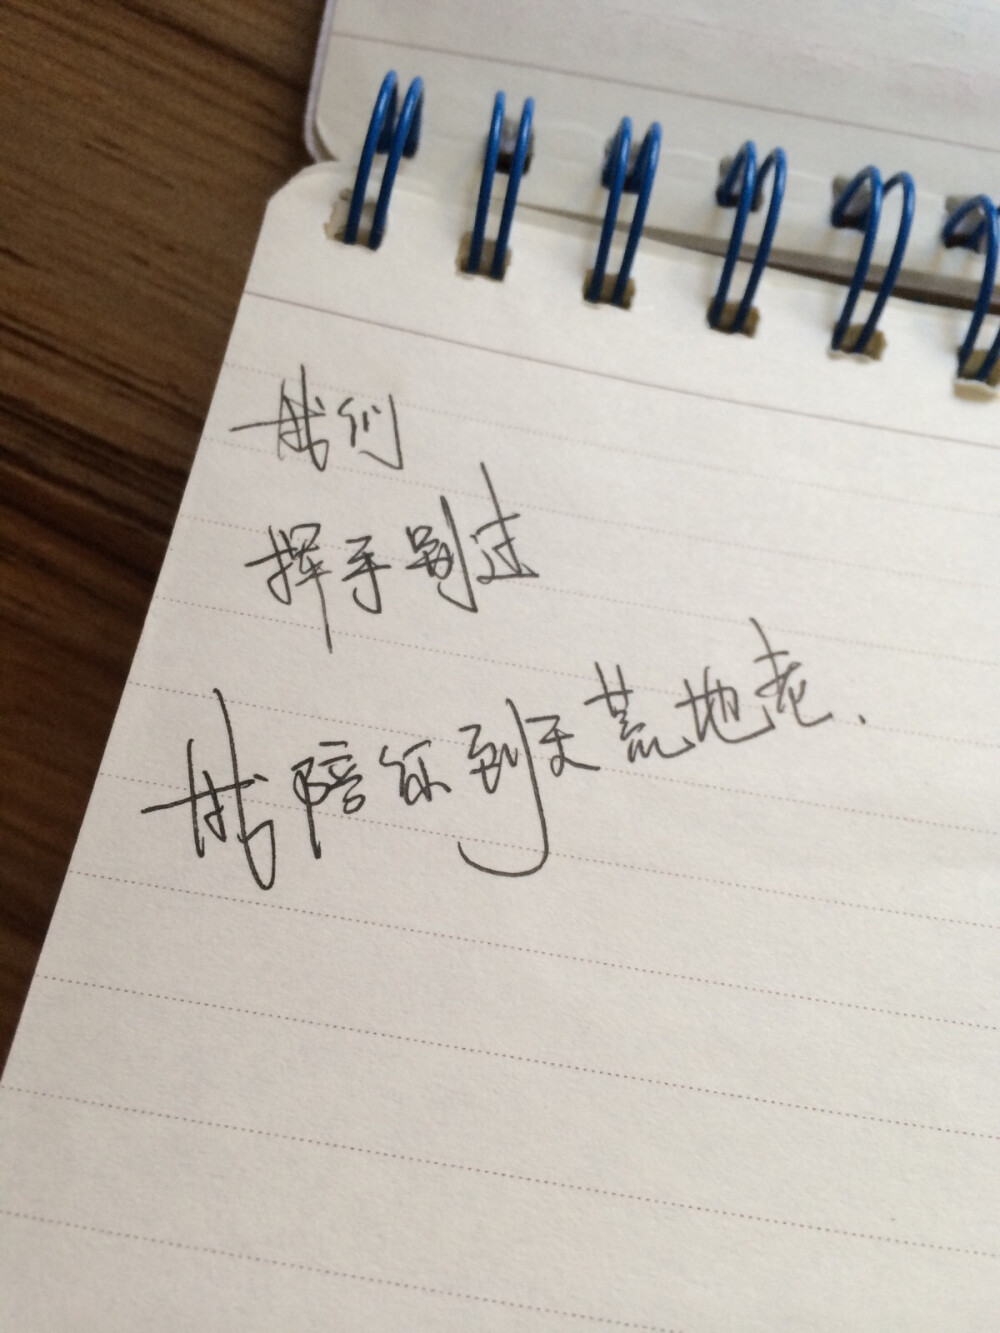 我们
挥手别过
我陪你到天荒地老.